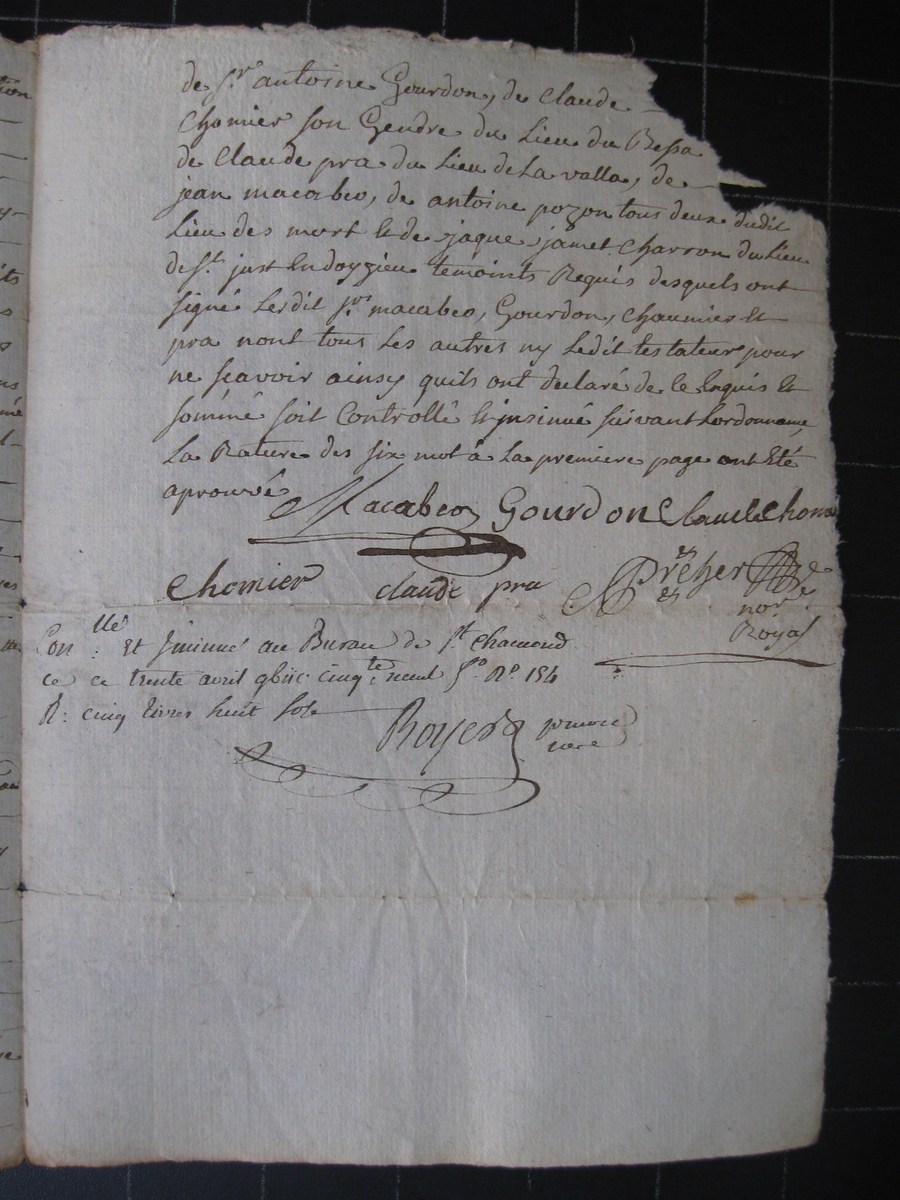 de Sr. antoine Gourdon, de Claude
Chomier son Gendre du Lieu du Bessa
de Claude pra du Lieu de Lavalla, de
jean macabeo, de antoine pozon tous deux dudit
Lieu des mort et de jaque jamet charron du Lieu
de St. just Endoyzieu temoints Requis desquels ont
signé Lesdit Srs macabeo, Gourdon, chaumier et
pra nont tous Les autres ny Ledit testateur pour
ne scavoir ainsy quils ont declaré de le Enquis et
sommé soit Controllé Et insinué suivant Lordonnance,
La Rature des six mot à La premiere page ont Eté
aprouvé
Macabeo Gourdon Claude Chomie
Chomier claude pra
nore
Royal
Conllé : Et Jnsinué au Bureau de St. chamond
ce trente avril gbiic cinqte neuf fo. Ro. 154
R: cinq livres huit sols
Royer